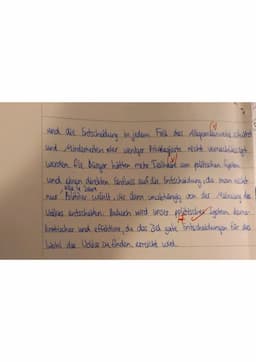 und die Entscheidung in jedem Fall das Allgemeinwohl schützt
und Minderheiten oder weniger Privilegierte nicht vernachlässigt
werden. Die Bürger hätten mehr Teilhabe am politischen System
und einen direkten Einfluss auf die Entscheidung, da man nicht
nur Politiker wählt, die dann unabhängig von der Meinung des
Volkes entscheiden. Dadurch wird unser politisches System
kratischer und effektiver, da das Ziel gute Entscheidungen für das
Wohl des Volkes zu finden, erreicht wird.